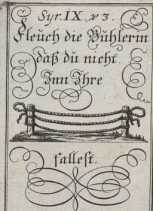 Syr. IX. v 3.
Fleuch die Bühlerin
daß du nicht
Inn Ihre
fallest.